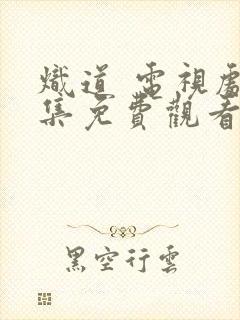 熾道 電視
集免費觀看
黑空行雲